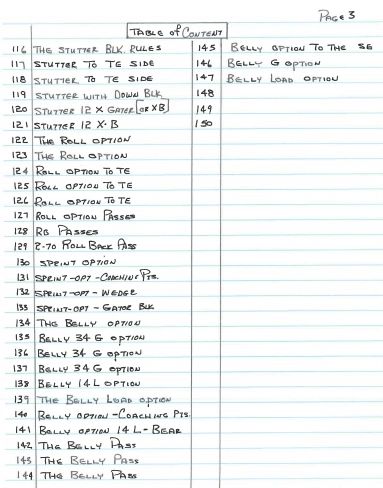 PAGE 3
TABLE of CONTENT
116 THE STUTTER BLK. RULES
117 STUTTER TO TE SIDE
118 STUTTER TO TE SIDE
119 STUTTER WITH DOWN BLK
120 STUTTER 12 X GATER [OR XB]
121 STUTTER 12 X-B
122 THE ROLL OPTION
123 THE ROLL OPTION
124 ROLL OPTION TO TE
125 ROLL OPTION TO TE
126 ROLL OPTION TO TE
127 ROLL OPTION PASSES
128 RB PASSES
129 2-70 ROLL BACK PASS
130 SPRINT OPTION
131 SPRINT-OPT-COACHING PTS.
132 SPRINT-OPT-WEDGE
133 SPRINT-OPT-GATOR BLK
134 THE BELLY OPTION
135 BELLY 34 G OPTION
136 BELLY 34 G OPTION
137 BELLY 34 G OPTION
138 BELLY 14 L OPTION
139 THE BELLY LOAD OPTION
140 BELLY OPTION-COACHING PTS
141 BELLY OPTION 14 L-BEAR
142 THE BELLY PASS
143 THE BELLY PASS
144 THE BELLY PASS
145 BELLY OPTION TO THE SE
146 BELLY G OPTION
147 BELLY LOAD OPTION
148
149
150